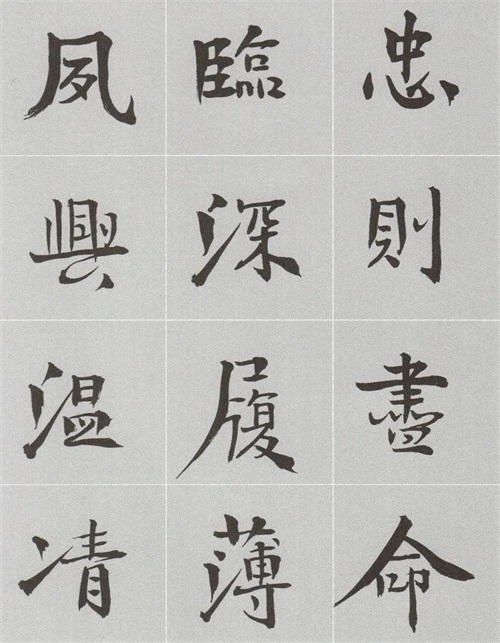 忠則盡命
臨深履薄
夙興温凊